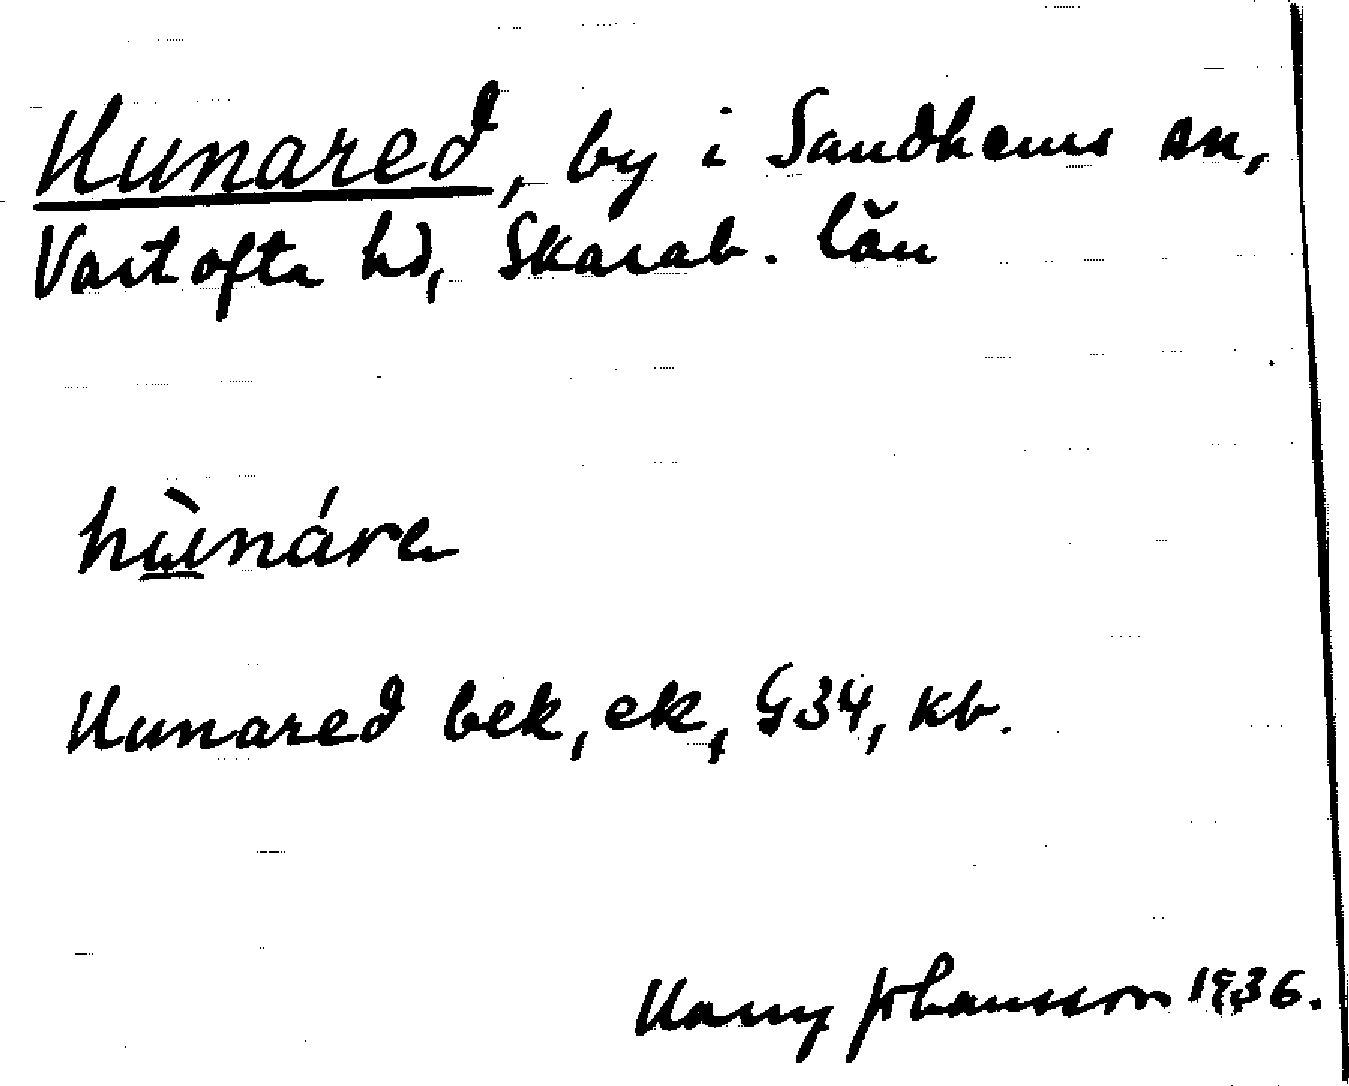 Hunared, by i Sandhems sn,
Vartofta hd, Skarab. län
hùnáre
Hunared bek, ek, G34, kb.
Harry Johansson 1936.